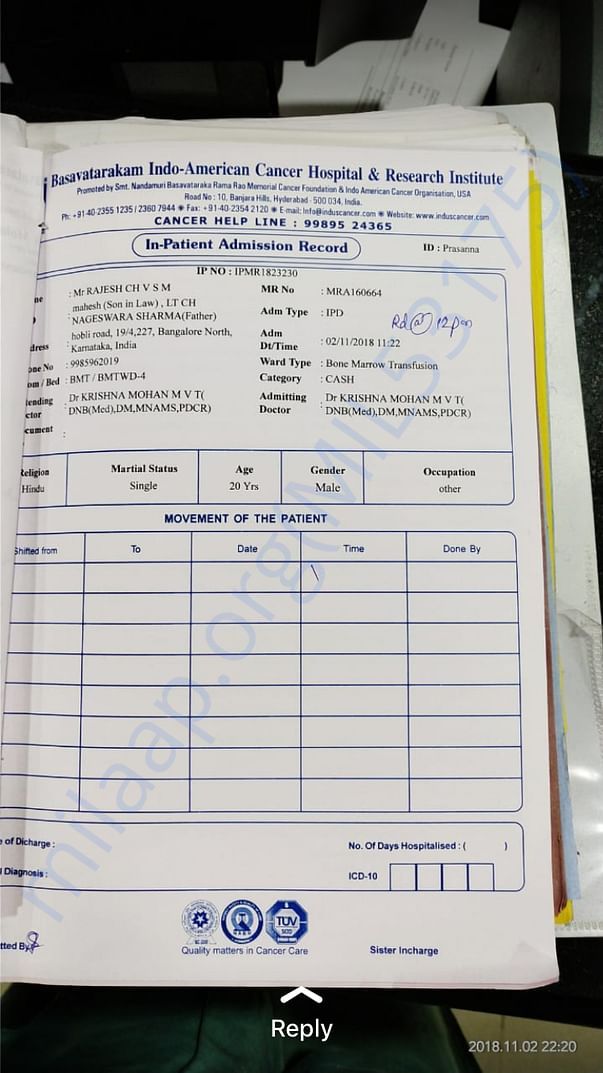 Basavatarakam Indo-American Cancer Hospital & Research Institute
Promoted by Smt. Nandamuri Basavataraka Rama Rao Memorial Cancer Foundation & Indo American Cancer Organisation, USA
Road No : 10, Banjara Hills, Hyderabad - 500 034, India.
Ph: +91-40-2355 1235 / 2360 7944 ✷ Fax: +91-40-2354 2120 ✷ E-mail: Info@induscancer.com ✷ Website: www.induscancer.com
CANCER HELP LINE : 99895 24365
In-Patient Admission Record
ID : Prasanna
IP NO : IPMR1823230
: Mr RAJESH CH V S M
MR No : MRA160664
mahesh (Son in Law) , LT CH
: NAGESWARA SHARMA(Father)
Adm Type : IPD
Rd @ 12pm
dress : hobli road, 19/4,227, Bangalore North,
Karnataka, India
Adm
Dt/Time : 02/11/2018 11:22
one No : 9985962019
Ward Type : Bone Marrow Transfusion
om / Bed : BMT / BMTWD-4
Category : CASH
ending
ctor : Dr KRISHNA MOHAN M V T(
DNB(Med),DM,MNAMS,PDCR)
Admitting
Doctor : Dr KRISHNA MOHAN M V T(
DNB(Med),DM,MNAMS,PDCR)
cument :
Religion Martial Status Age Gender Occupation
Hindu Single 20 Yrs Male other
MOVEMENT OF THE PATIENT
Shifted from To Date Time Done By
e of Dicharge :
No. Of Days Hospitalised : ( )
l Diagnosis :
ICD-10
TUV
tted By
Quality matters in Cancer Care
Sister Incharge
milaap.org(MIL53175)
Reply
2018.11.02 22:20